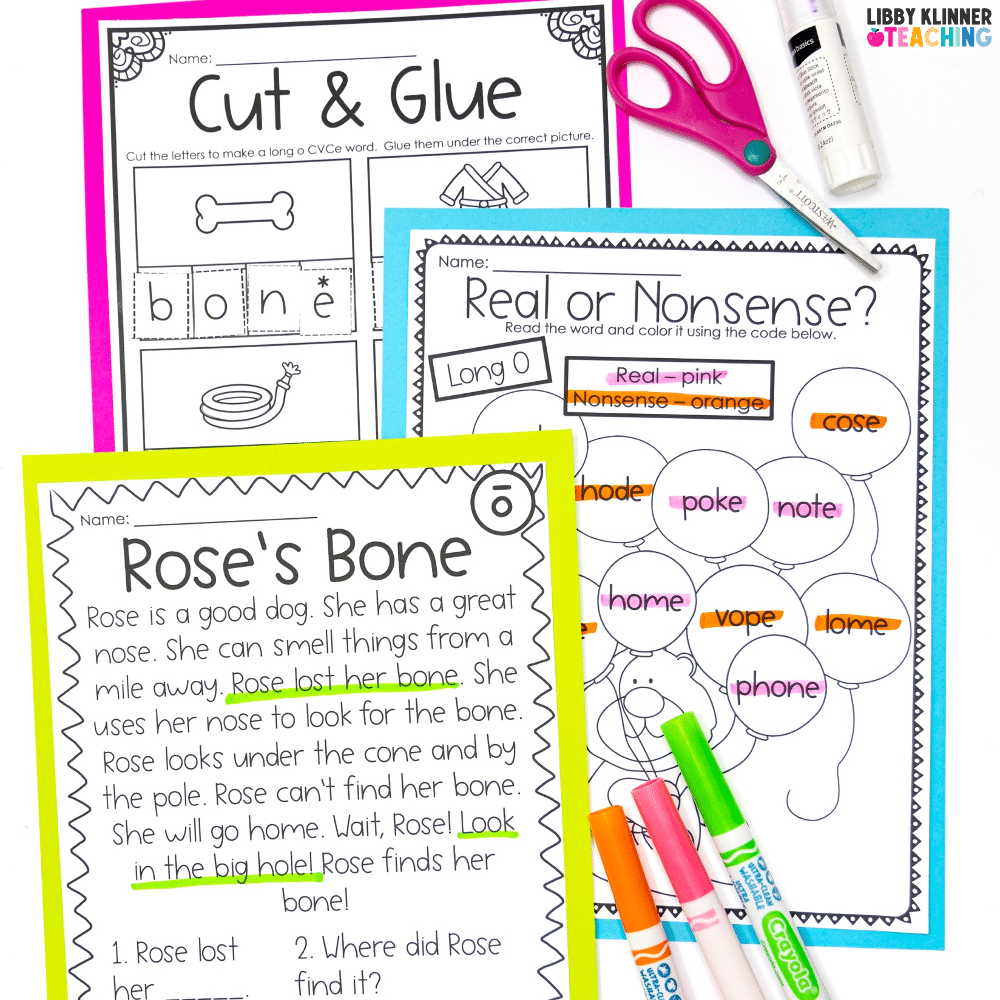 LIBBY KLINNER
TEACHING
Name:
Cut & Glue
Cut the letters to make a long o CVCe word. Glue them under the correct picture.
b o n e*
basics
WESTCOTT
Name:
Real or Nonsense?
Read the word and color it using the code below.
Long O
Real – pink
Nonsense – orange
cose
hode
poke
note
home
vope
lome
phone
ō
Name:
Rose's Bone
Rose is a good dog. She has a great
nose. She can smell things from a
mile away. Rose lost her bone. She
uses her nose to look for the bone.
Rose looks under the cone and by
the pole. Rose can't find her bone.
She will go home. Wait, Rose! Look
in the big hole! Rose finds her
bone!
1. Rose lost
her ______.
2. Where did Rose
find it?
ULTRA-CLEAN
WASHABLE
ULTRA-CLEAN
WASHABLE
Crayola